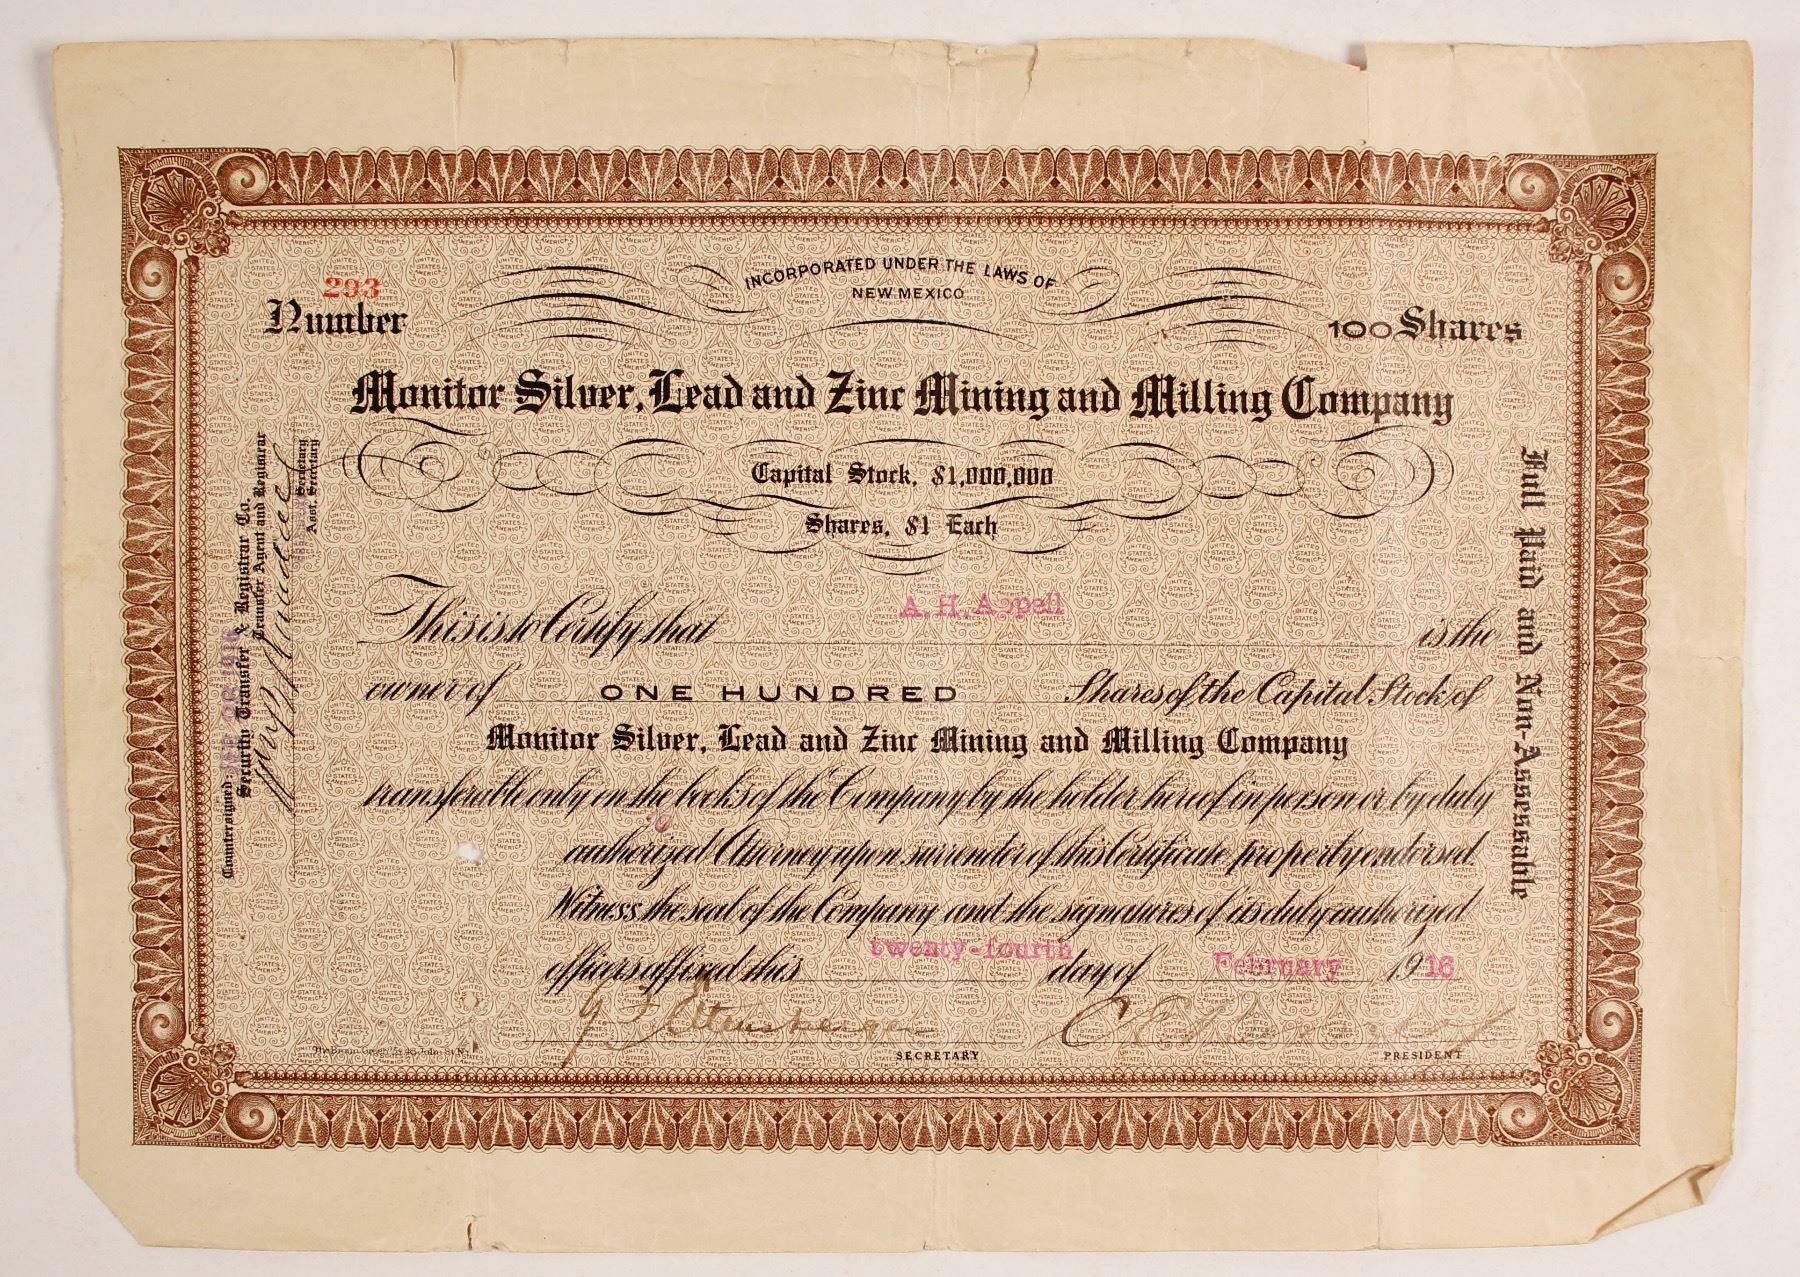 INCORPORATED UNDER THE LAWS OF
NEW MEXICO
293
Number
100 Shares
Monitor Silver, Lead and Zinc Mining and Milling Company
Capital Stock, $1,000,000
Shares, $1 Each
This is to Certify that A. H. Appell is the
owner of ONE HUNDRED Shares of the Capital Stock of
Monitor Silver, Lead and Zinc Mining and Milling Company
transferable only on the books of the Company by the holder hereof in person or by duly
authorized Attorney upon surrender of this Certificate properly endorsed.
Witness the seal of the Company and the signatures of its duly authorized
officers affixed this twenty-fourth day of February 1916
SECRETARY
PRESIDENT
Countersigned
Security Transfer & Registrar Co.
Transfer Agent and Registrar
Secretary
Asst. Secretary
Full Paid and Non-Assessable